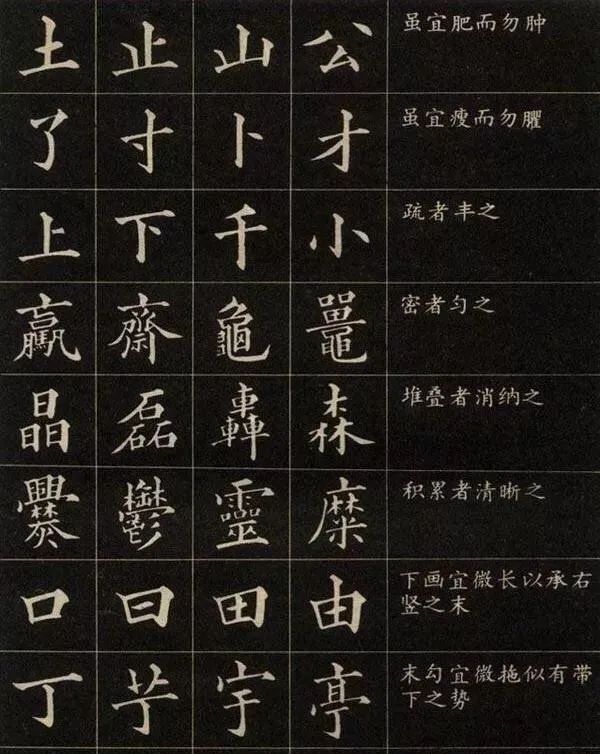 土 止 山 公 虽宜肥而勿肿
了 寸 卜 才 虽宜瘦而勿臞
上 下 千 小 疏者丰之
赢 齋 龜 鼍 密者匀之
晶 磊 轟 森 堆叠者消纳之
爨 鬱 靈 糜 积累者清晰之
口 曰 田 由 下画宜微长以承右
竖之末
丁 宇 亭 末勾宜微拖似有带
下之势